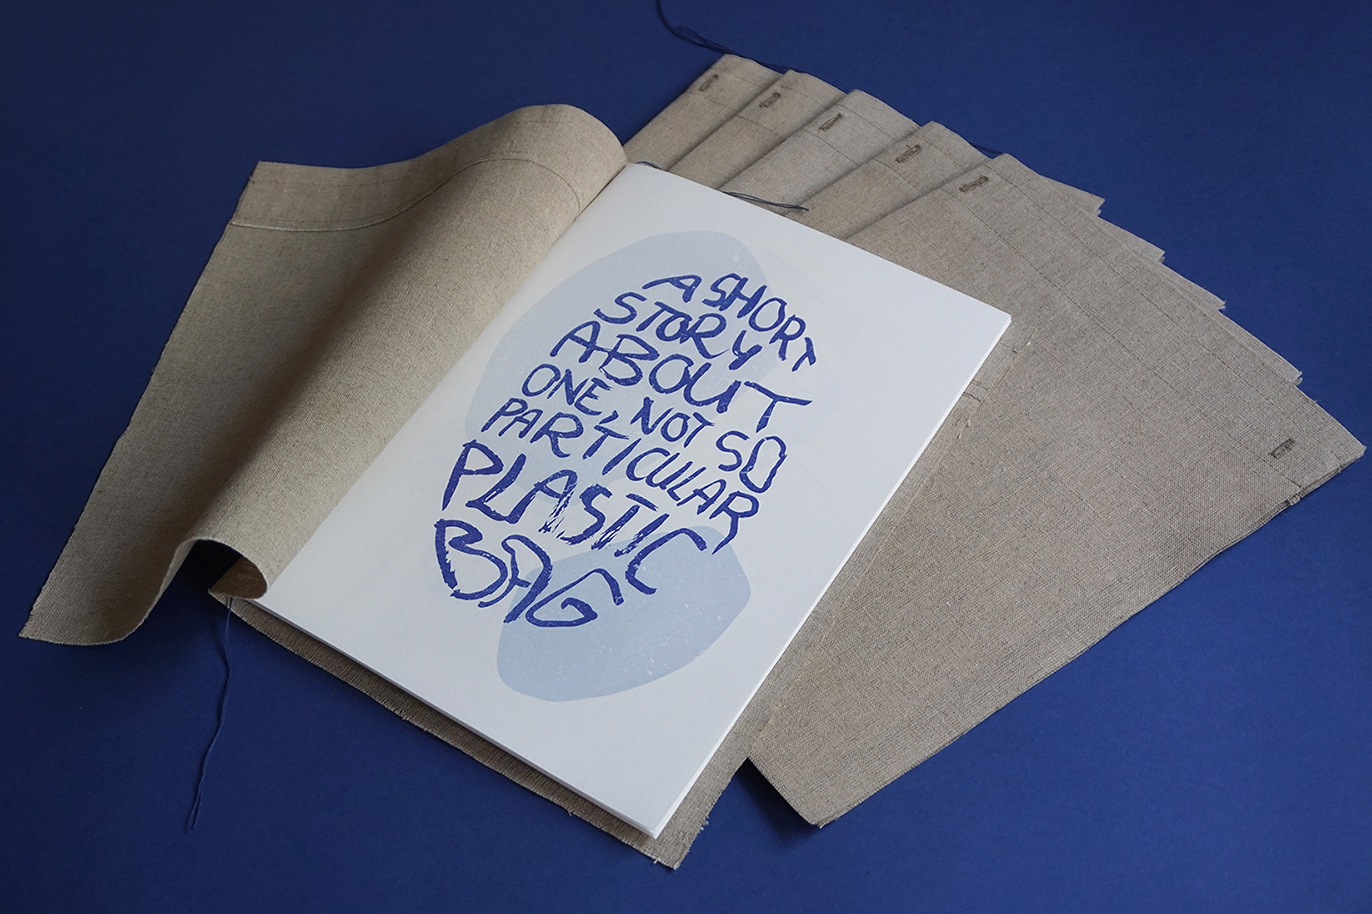 A SHORT
STORY
ABOUT
ONE, NOT SO
PARTICULAR
PLASTIC
BAG